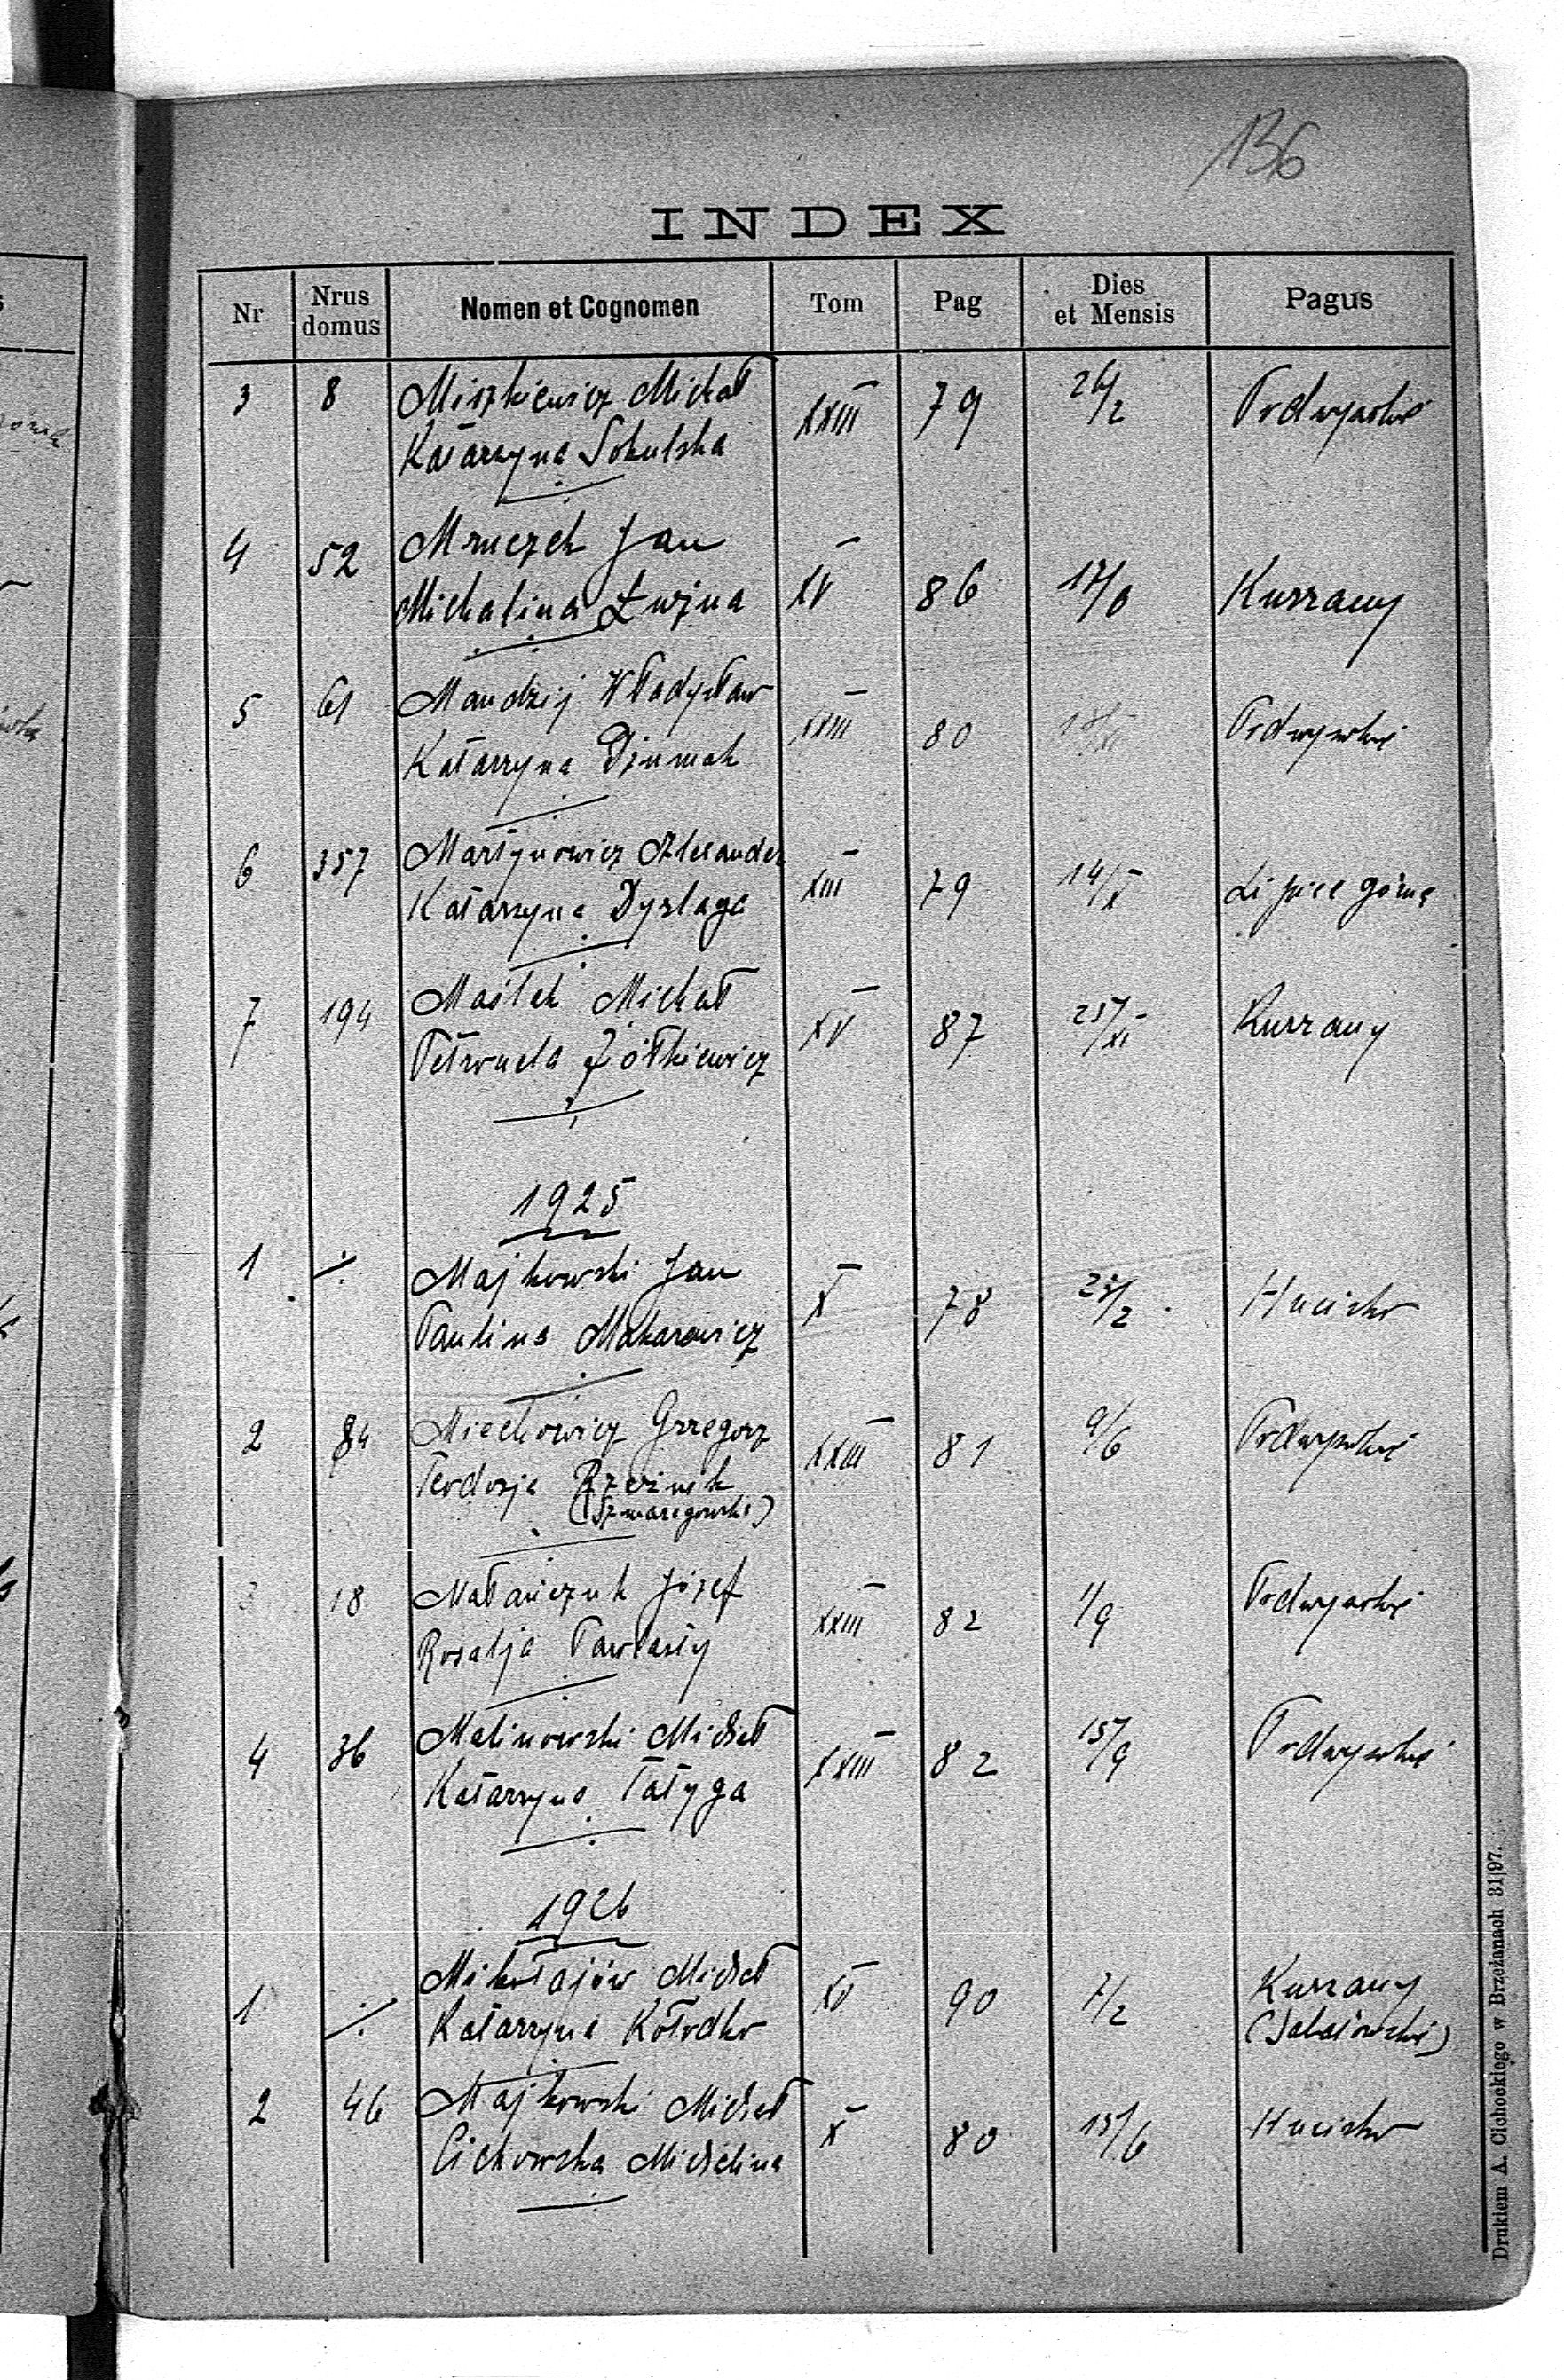 136
INDEX
Nr Nrus domus Nomen et Cognomen Tom Pag Dies et Mensis Pagus
3 8 Miszkiewicz Michał XXIII 79 26/2 Podwysokie
Katarzyna Sokulska
4 52 Mruczek Jan XV 86 17/8 Kurzany
Michalina Łuzna
5 61 Mandzij Władysław XXIII 80 18/XI Podwysokie
Katarzyna Dziumak
6 357 Martynowicz Alexander XIII 79 14/X Lipica górna
Katarzyna Dyrlaga
7 194 Maślak Michał XV 87 25/XI Kurzany
Petronela Żółkiewicz
1925
1 ./. Majkowski Jan X 78 /2 Hucisko
Paulina Makarewicz
2 84 Miechowicz Grzegorz XXIII 81 9/6 Podwysokie
Teodozja Rzeźnik
(Szmaregowski)
3 18 Małańczuk Józef XXIII 82 1/9 Podwysokie
Rozalja Pawlasty
4 36 Malinowski Michał XXIII 82 15/9 Podwysokie
Katarzyna Tatyga
1926
1 ./. Mikołajów Michał XV 90 7/2 Kurzany
Katarzyna Kołodko
2 46 Majkowski Michał X 80 15/6 Hucisko
Cichowska Michalina
Drukiem A. Cichockiego w Brzeżanach 31|97.